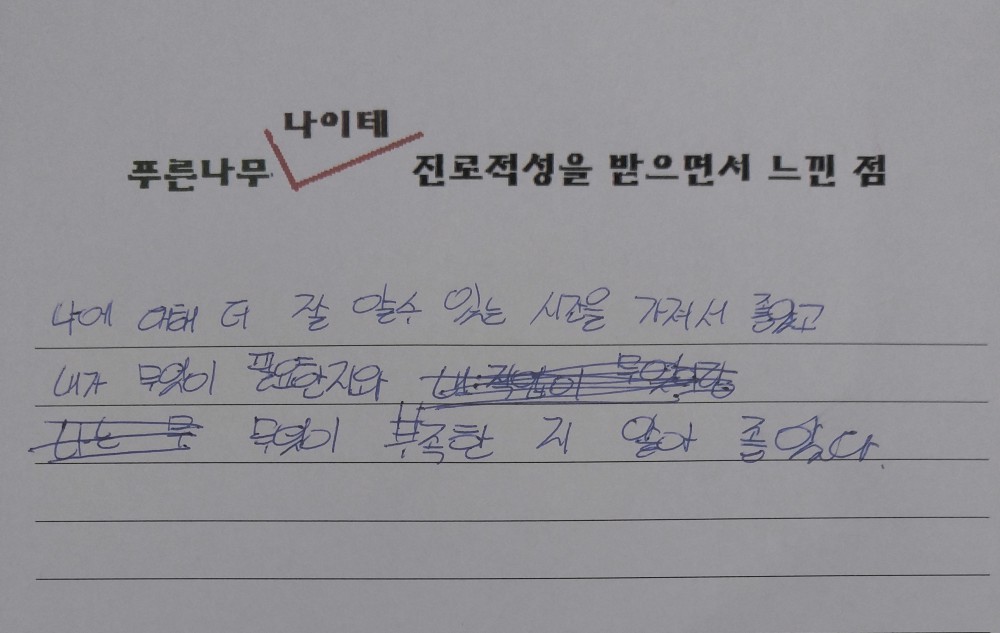 나이테
푸른나무 진로적성을 받으면서 느낀 점
나에 대해 더 잘 알수 있는 시간을 가져서 좋았고
내가 무엇이 필요한지와
무엇이 부족한 지 알아 좋았다.